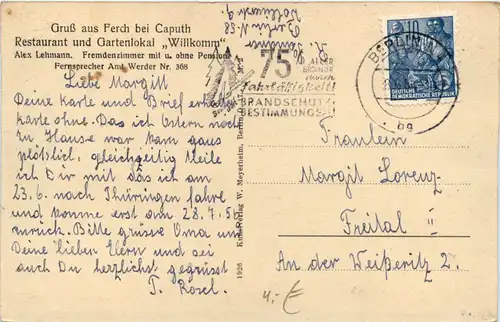 Gruß aus Ferch bei Caputh
Restaurant und Gartenlokal „Willkomm"
Alex Lehmann. Fremdenzimmer mit u. ohne Pension
Fernsprecher Amt Werder Nr. 368
Liebe Margitt
Deine Karte und Brief erhalten
karte ohne. Das ich Ostern noch
zu Hause war kam ganz
plötzlich, gleichzeitig teile
ich Dir mit das ich am
23.6. nach Thüringen fahre
und komme erst am 28.7.56
zurück. Bitte grüsse Oma und
Deine lieben Eltern und sei
auch Du herzlichst gegrüsst
T. Rosel.
Berlin N-58
75
% ALLER
BRÄNDE
durch
Fahrlässigkeit!
BRANDSCHUTZ-
BESTIMMUNGEN
BERLIN
bg
10
DEUTSCHE
DEMOKRATISCHE REPUBLIK
Verlag W. Meyerheim, Berlin
1926
Fräulein
Margit Lorenz
Freital II
An der Weißeritz 2.
4.- €